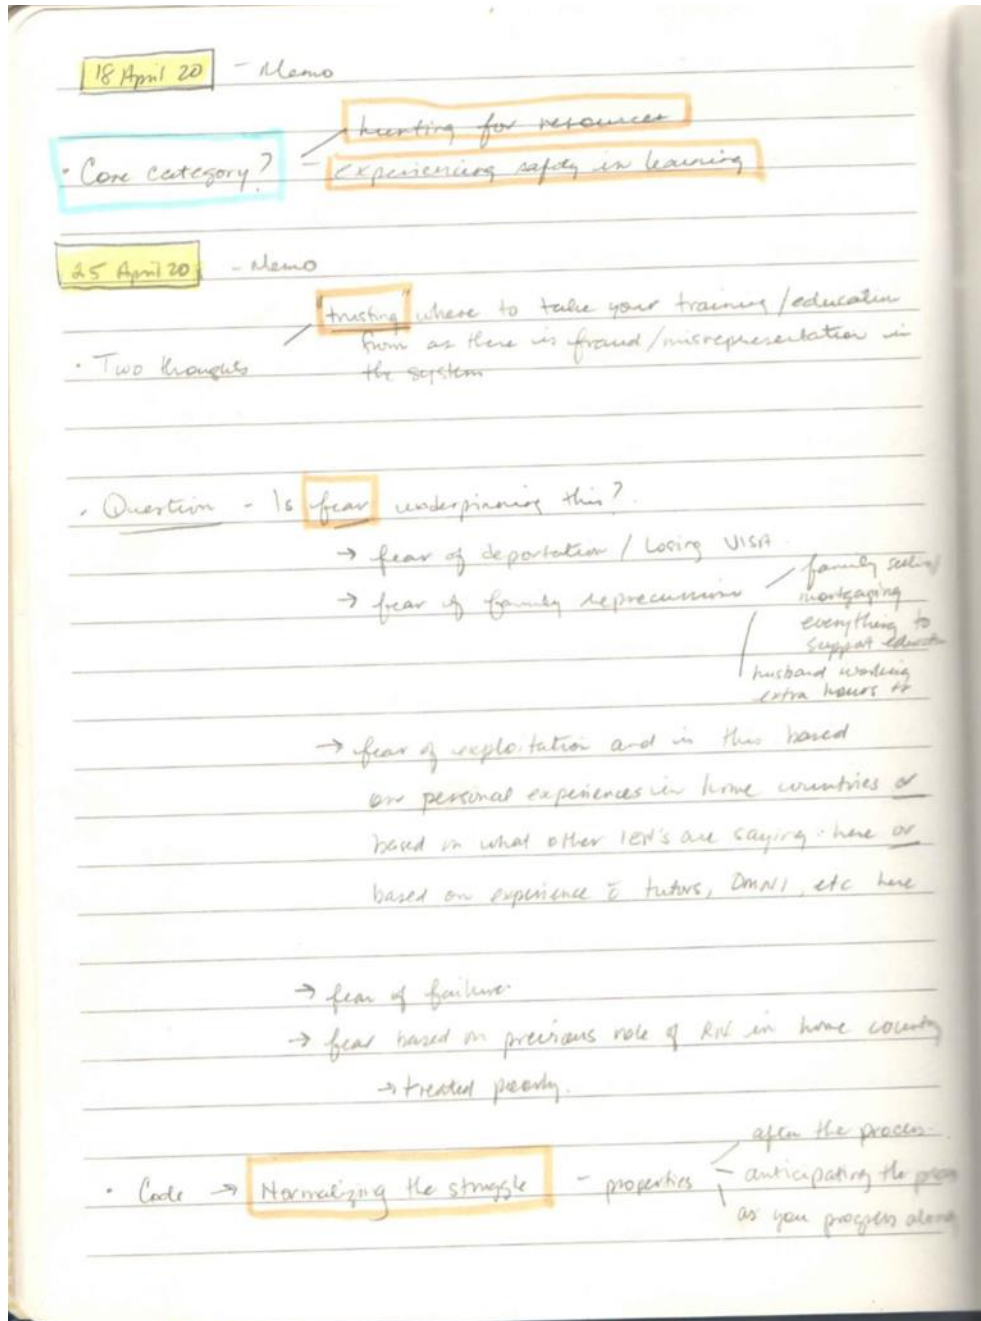 18 April 20 - Memo
hunting for resources
· Core category? - experiencing safety in learning
25 April 20 - Memo
"trusting" where to take your training/education
from as there is fraud/misrepresentation in
· Two thoughts
the system
· Question - Is fear underpinning this?
→ fear of deportation / Losing VISA
→ fear of family reprecussion
family selling/
mortgaging
everything to
support education
husband working
extra hours
→ fear of exploitation and is this based
on personal experiences in home countries or
based on what other IEN's are saying here or
based on experience c̄ tutors, OMNI, etc here
→ fear of failure.
→ fear based on previous role of RN in home country
→ treated poorly.
after the process.
· Code → Normalizing the struggle - properties - anticipating the
as you progress along